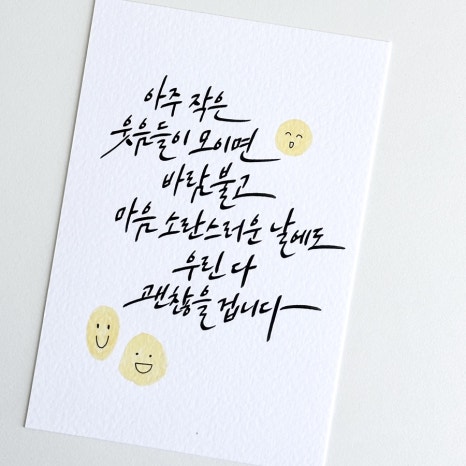 아주 작은
웃음들이 모이면
바람 불고
마음 소란스러운 날에도
우린 다
괜찮을 겁니다